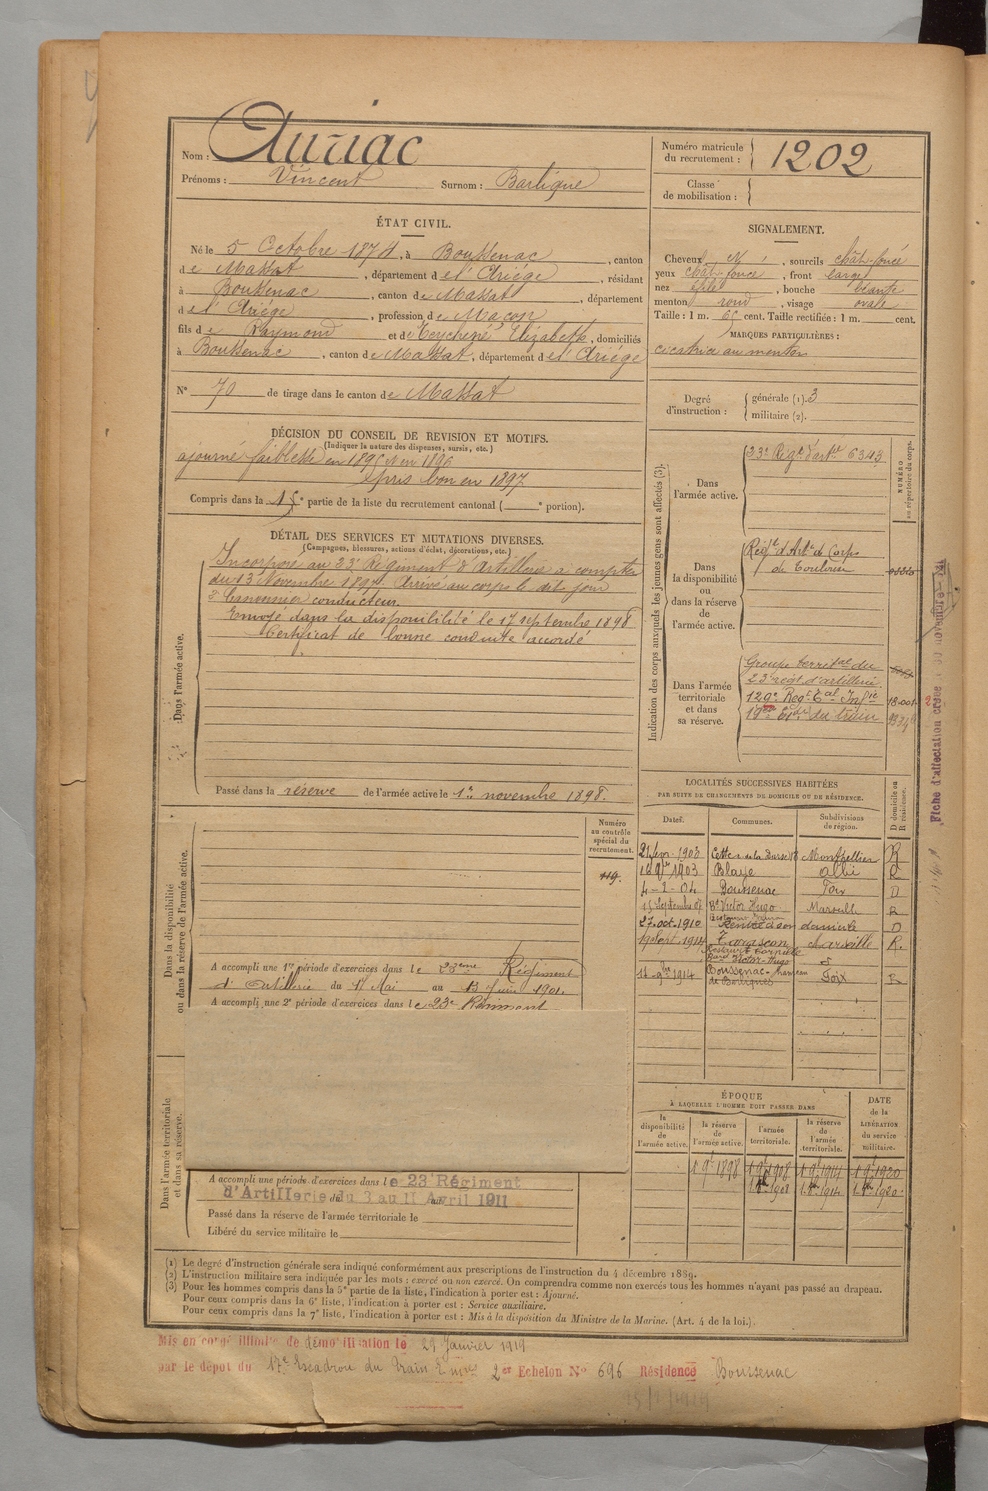 Nom : Auriac
Prénoms : Vincent Surnom : Barligue
Numéro matricule du recrutement : 1202
Classe de mobilisation :
ÉTAT CIVIL.
Né le 5 Octobre 1874, à Boussenac, canton
de Massat, département de l'Ariège, résidant
à Boussenac, canton de Massat, département
de l'Ariège, profession de Maçon
fils de Raymond et de Teychené Elizabeth, domiciliés
à Boussenac, canton de Massat, département de l'Ariège
N° 70 de tirage dans le canton de Massat
SIGNALEMENT.
Cheveux , sourcils chât-foncé
yeux chât-foncé, front large
nez effilé, bouche béante
menton rond, visage ovale
Taille : 1 m. 65 cent. Taille rectifiée : 1 m. cent.
MARQUES PARTICULIÈRES :
cicatrice au menton
Degré d'instruction : générale (1). 3
militaire (2).
DÉCISION DU CONSEIL DE REVISION ET MOTIFS.
(Indiquer la nature des dispenses, sursis, etc.)
ajourné faiblesse en 1895 et en 1896
pris bon en 1897
Compris dans la 1e partie de la liste du recrutement cantonal ( e portion).
DÉTAIL DES SERVICES ET MUTATIONS DIVERSES.
(Campagnes, blessures, actions d'éclat, décorations, etc.)
Dans l'armée active.
Incorporé au 23e Régiment d'Artillerie à compter
du 13 Novembre 1897. Arrivé au corps le dit jour
2e Canonnier conducteur.
Envoyé dans la disponibilité le 17 septembre 1898
Certificat de bonne conduite accordé
Passé dans la réserve de l'armée active le 1er novembre 1898.
Indication des corps auxquels les jeunes gens sont affectés (3).
NUMÉRO au répertoire du corps.
Dans l'armée active.
23e Régt d'artie 6343
Dans la disponibilité ou dans la réserve de l'armée active.
Régt d'Artie de Corps
de Toulouse
Dans l'armée territoriale et dans sa réserve.
Groupe territal du
23e régt d'artillerie
129e Regt tal Infie 18-001
du train
Fiche d'affectation créée
LOCALITÉS SUCCESSIVES HABITÉES
PAR SUITE DE CHANGEMENTS DE DOMICILE OU DE RÉSIDENCE.
Dates. Communes. Subdivisions de région. D domicile ou R résidence.
21 janv. 1903 Cette Montpellier R
16 9bre 1903 Blaye Albi R
4-2-04 Boussenac Foix D
15 Septembre 07 Bd Victor Hugo Marseille R
27 oct. 1910 domicile D
19 Sept. 1914 Tarascon Marseille R.
Victor-Hugo
1914 Boussenac-hameau Foix R
Numéro au contrôle spécial du recrutement.
119.
Dans la disponibilité ou dans la réserve de l'armée active.
A accompli une 1re période d'exercices dans le 23ème Régiment
d'Artillerie du 17 Mai au 13 Juin 1901.
A accompli une 2e période d'exercices dans le 23e Régiment
Dans l'armée territoriale et dans sa réserve.
A accompli une période d'exercices dans le 23e Régiment
d'Artillerie du 3 au 11 Avril 1911
Passé dans la réserve de l'armée territoriale le
Libéré du service militaire le
ÉPOQUE
À LAQUELLE L'HOMME DOIT PASSER DANS
la disponibilité de l'armée active.
la réserve de l'armée active.
l'armée territoriale.
la réserve de l'armée territoriale.
DATE de la LIBÉRATION du service militaire.
1 9bre 1898 1 9bre 1908 1 9bre 1914 1 9bre 1920
1 8bre 1908 1 8bre 1914 1 8bre 1920
(1) Le degré d'instruction générale sera indiqué conformément aux prescriptions de l'instruction du 4 décembre 1889.
(2) L'instruction militaire sera indiquée par les mots : exercé ou non exercé. On comprendra comme non exercés tous les hommes n'ayant pas passé au drapeau.
(3) Pour les hommes compris dans la 5e partie de la liste, l'indication à porter est : Ajourné.
Pour ceux compris dans la 6e liste, l'indication à porter est : Service auxiliaire.
Pour ceux compris dans la 7e liste, l'indication à porter est : Mis à la disposition du Ministre de la Marine. (Art. 4 de la loi.)
Mis en congé illimité de démobilisation le 29 Janvier 1919
par le dépôt du 17e Escadron du Train 2er Echelon No 696 Résidence Boussenac